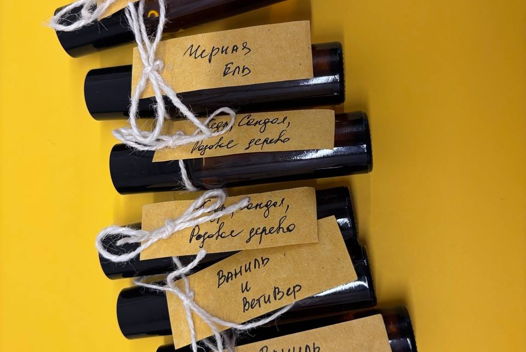 Черная
Ель
Кедр, Сандал,
Розовое дерево
Сандал,
Розовое дерево
Ваниль
и
Ветивер
Ваниль